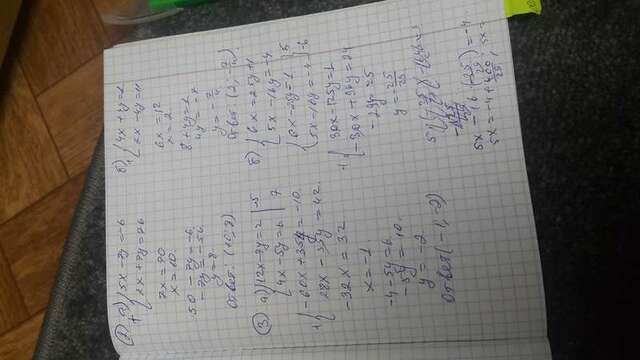 2) а) { 5x - 7y = -6
+ { 2x + 7y = 76
7x = 70
x = 10.
50 - 7y = -6
-7y = -56
y = 8.
Ответ: (10; 8)
б) { 4x + 4y = 1
+ { 2x - 4y = 11
6x = 12
x = 2
8 + 4y = 1
4y = -7
y = -7/4
Ответ: (2; -7/4)
3) а) { 12x - 7y = 2 | -5
{ 4x - 5y = 6 | 7
+ { -60x + 35y = -10
28x - 35y = 42
-32x = 32
x = -1
-4 - 5y = 6
-5y = 10
y = -2
Ответ (-1; -2)
б) { 6x = 25y + 1
{ 5x - 16y = -4
{ 6x - 25y = 1 | 5
{ 5x - 16y = -4 | -6
+ { 30x - 125y = 1
-30x + 96y = 24
-29y = 25
y = -25/29
5x - 16 · (25/29) = -4
5x = -4 + 400/29, 5x =